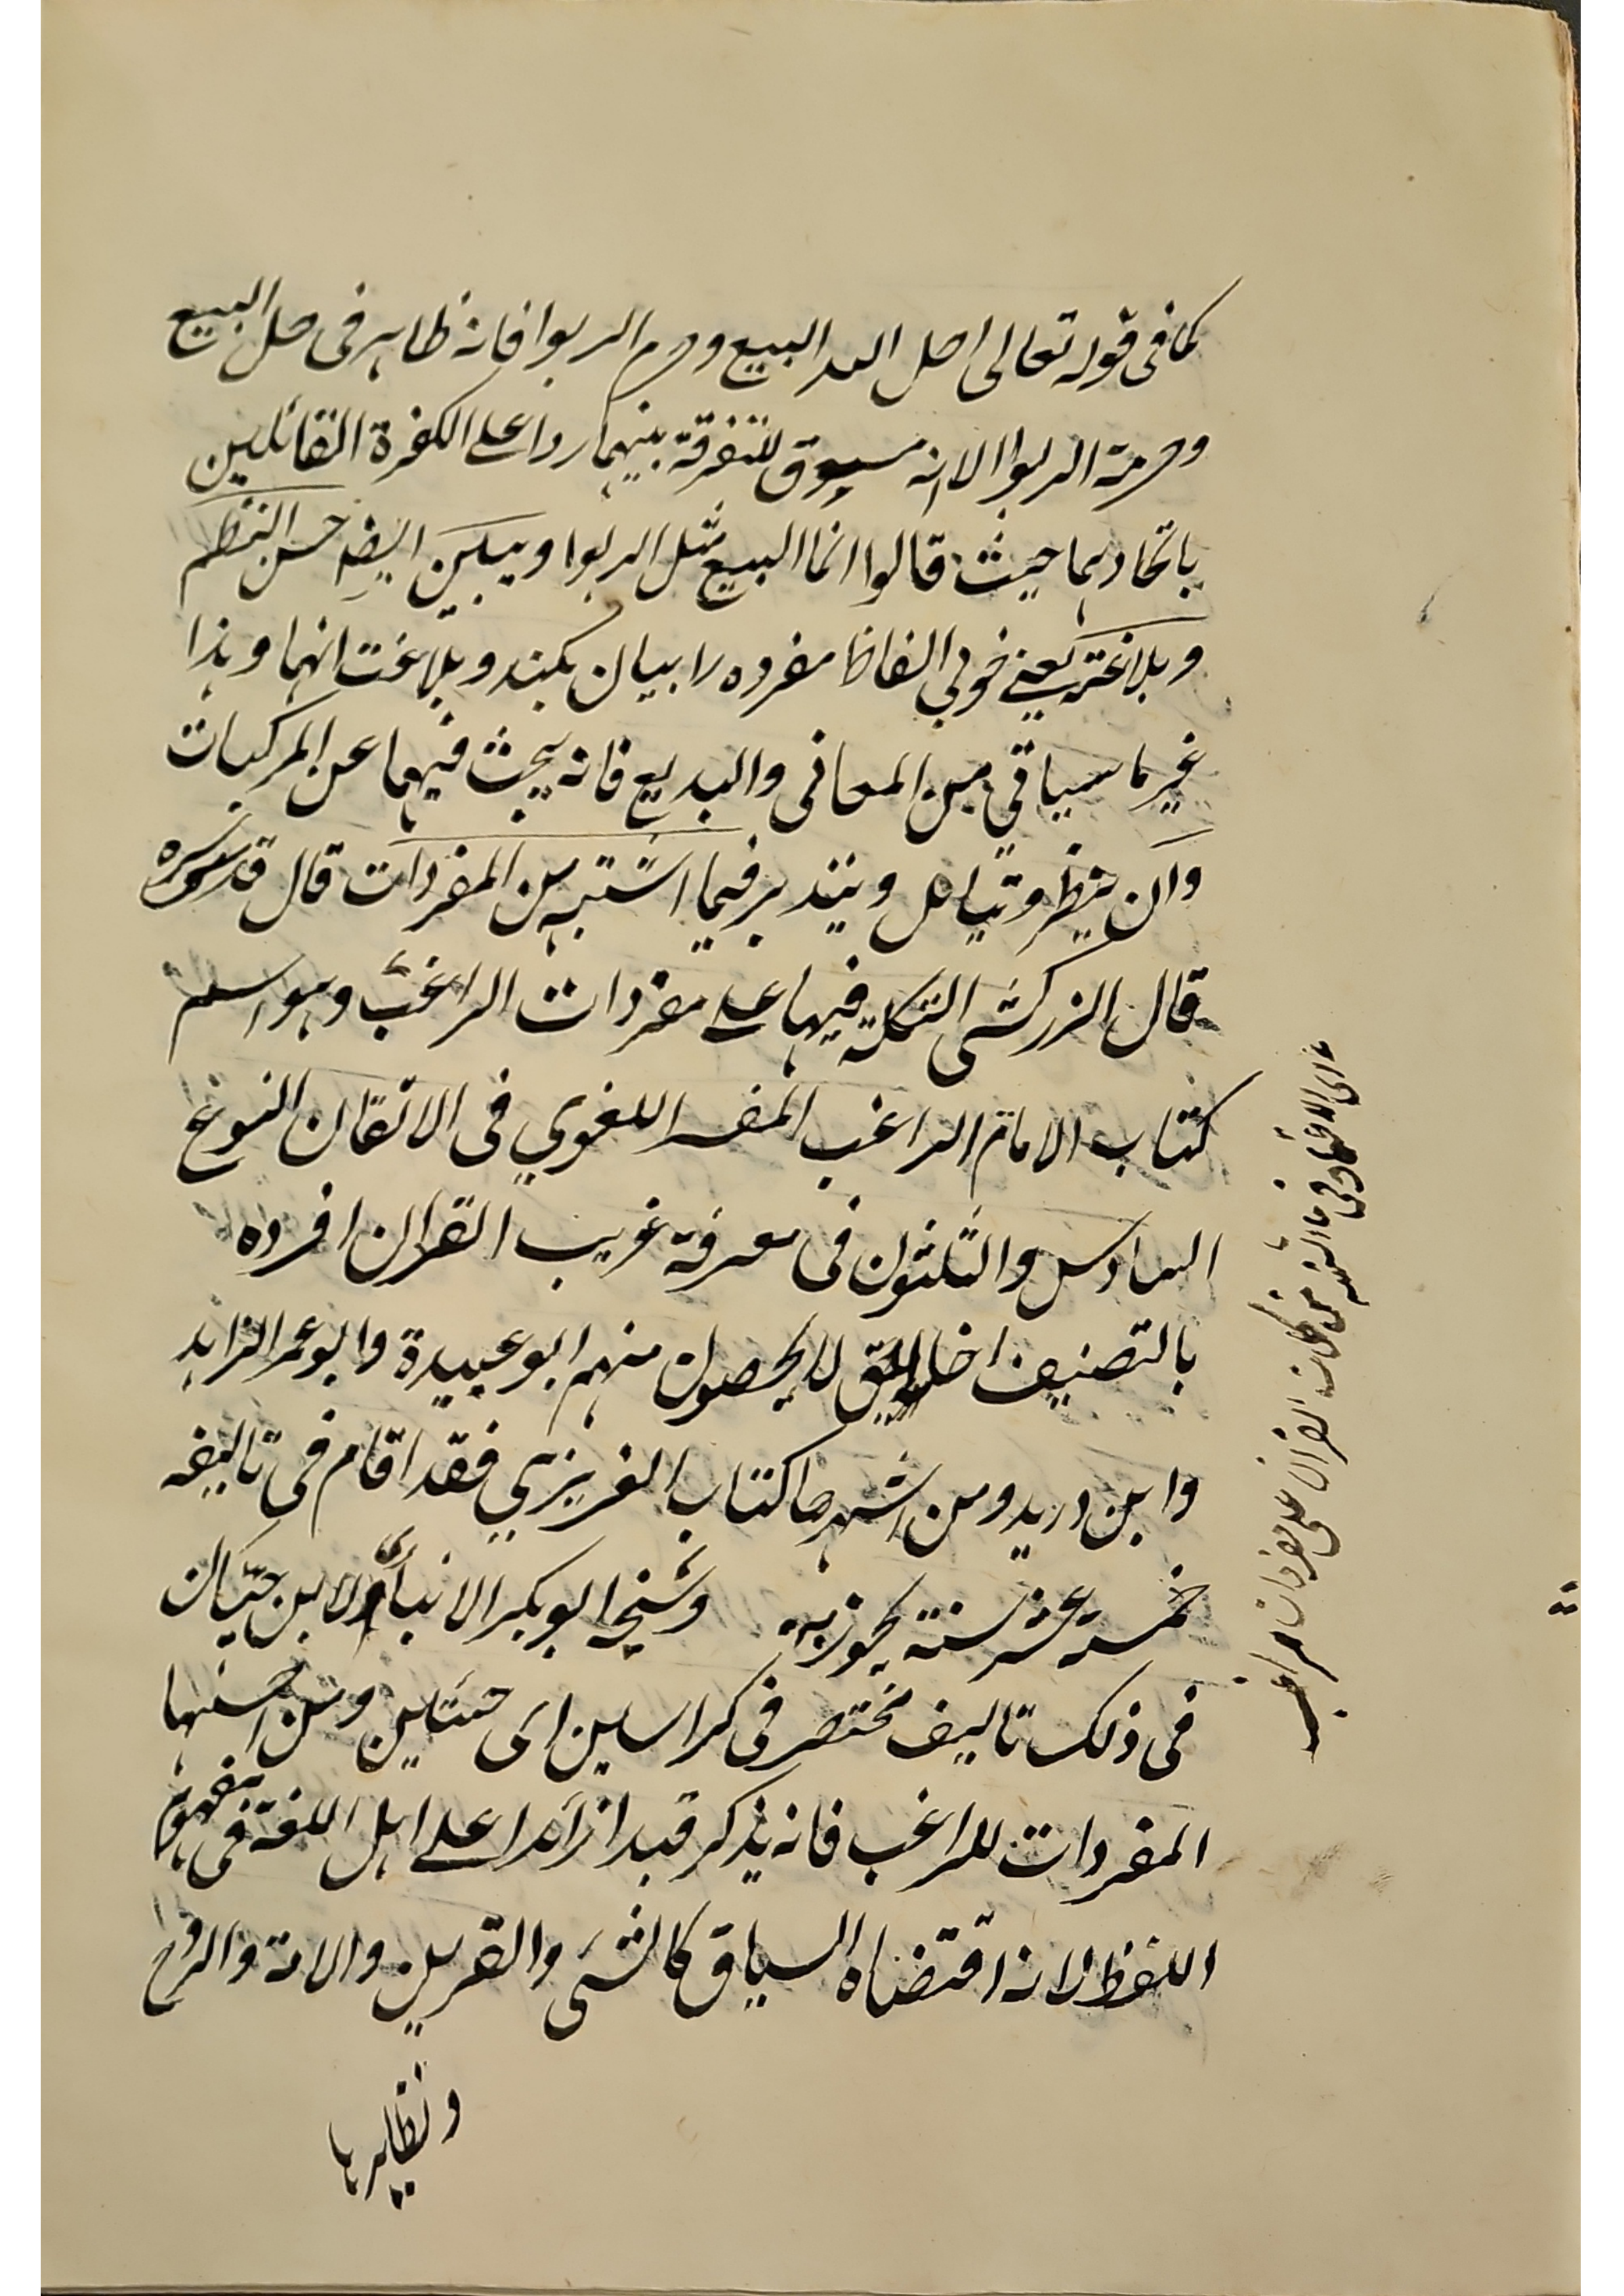 كما فى قوله تعالى احل الله البيع وحرم الربوا فانه ظاهر فى حل البيع
وحرمة الربوا الا انه مسوق للتفرقة بينهما ردا على الكفرة القائلين
باتحادهما حيث قالوا انما البيع مثل الربوا ويبين ايضا حسن النظم
وبلاغته يعنى خوبي الفاظ مفرده را بيان بكند وبلاغت انها وهذا
غير ما سياتي من المعانى والبديع فانه يبحث فيهما عن المركبات
وان ينظر ويتأمل ويتدبر فيما اشتبه من المفردات قال قدس سره
قال الزركشى التكلة فيها على مفردات الراغب وهو اسم
كتاب الامام الراغب المفسر اللغوي فى الاتقان النوع
السادس والثلثون فى معرفة غريب القران افرده
بالتصنيف خلايق لا يحصون منهم ابو عبيدة وابو عمر الزاهد
وابن دريد ومن اشهرها كتاب العزيزي فقد اقام فى تاليفه
خمسة عشر سنة يحوزبه وشيخه ابو بكر الانبارى ولابن حيان
فى ذلك تاليف مختصر فى كراسين اى ومن احسنها
المفردات للراغب فانه يذكر قيدا زائدا على اهل اللغة فى مفهوم
اللفظ لانه اقتضاه السياق كالشى والقربى والامة والروح
ونظايرها
اى الاعتماد فى ما اشتبه من كلمات القران على مفردات راغب